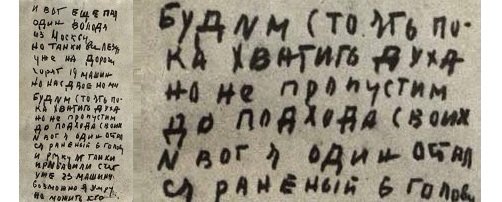 И ВОТ ЕЩЕ ПАЛ
ОДИН ВОЛОДЯ
ИЗ МОСКВЫ
НО ТАНКИ ВСЕ ЛЕЗУТ
УЖЕ НА ДОРОГЕ
ГОРЯТ 19 МАШИН
НО НАС ДВОЕ НО МЫ
БУДИМ СТОЯТЬ ПО-
КА ХВАТИТЬ ДУХА
НО НЕ ПРОПУСТИМ
ДО ПОДХОДА СВОИХ
И ВОТ Я ОДИН ОСТАЛ
СЯ РАНЕНЫЙ В ГОЛОВУ
И РУКУ И ТАНКИ
ПРИБАВИЛИ СЧЕТ
УЖЕ 23 МАШИНЫ
ВОЗМОЖНО Я УМРУ
НО МОЖИТЬ КТО
БУДИМ СТОЯТЬ ПО-
КА ХВАТИТЬ ДУХА
НО НЕ ПРОПУСТИМ
ДО ПОДХОДА СВОИХ
И ВОТ Я ОДИН ОСТАЛ
СЯ РАНЕНЫЙ В ГОЛОВУ